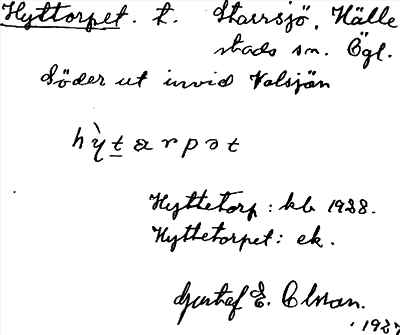 Hyttorpet. t. Starrsjö, Hälle
stads sn. Ögl.
Söder ut invid Valsjön
hỳtarpət
Hyttetorp: kb 1938.
Hyttetorpet: ek.
Gustaf E. Olsson.